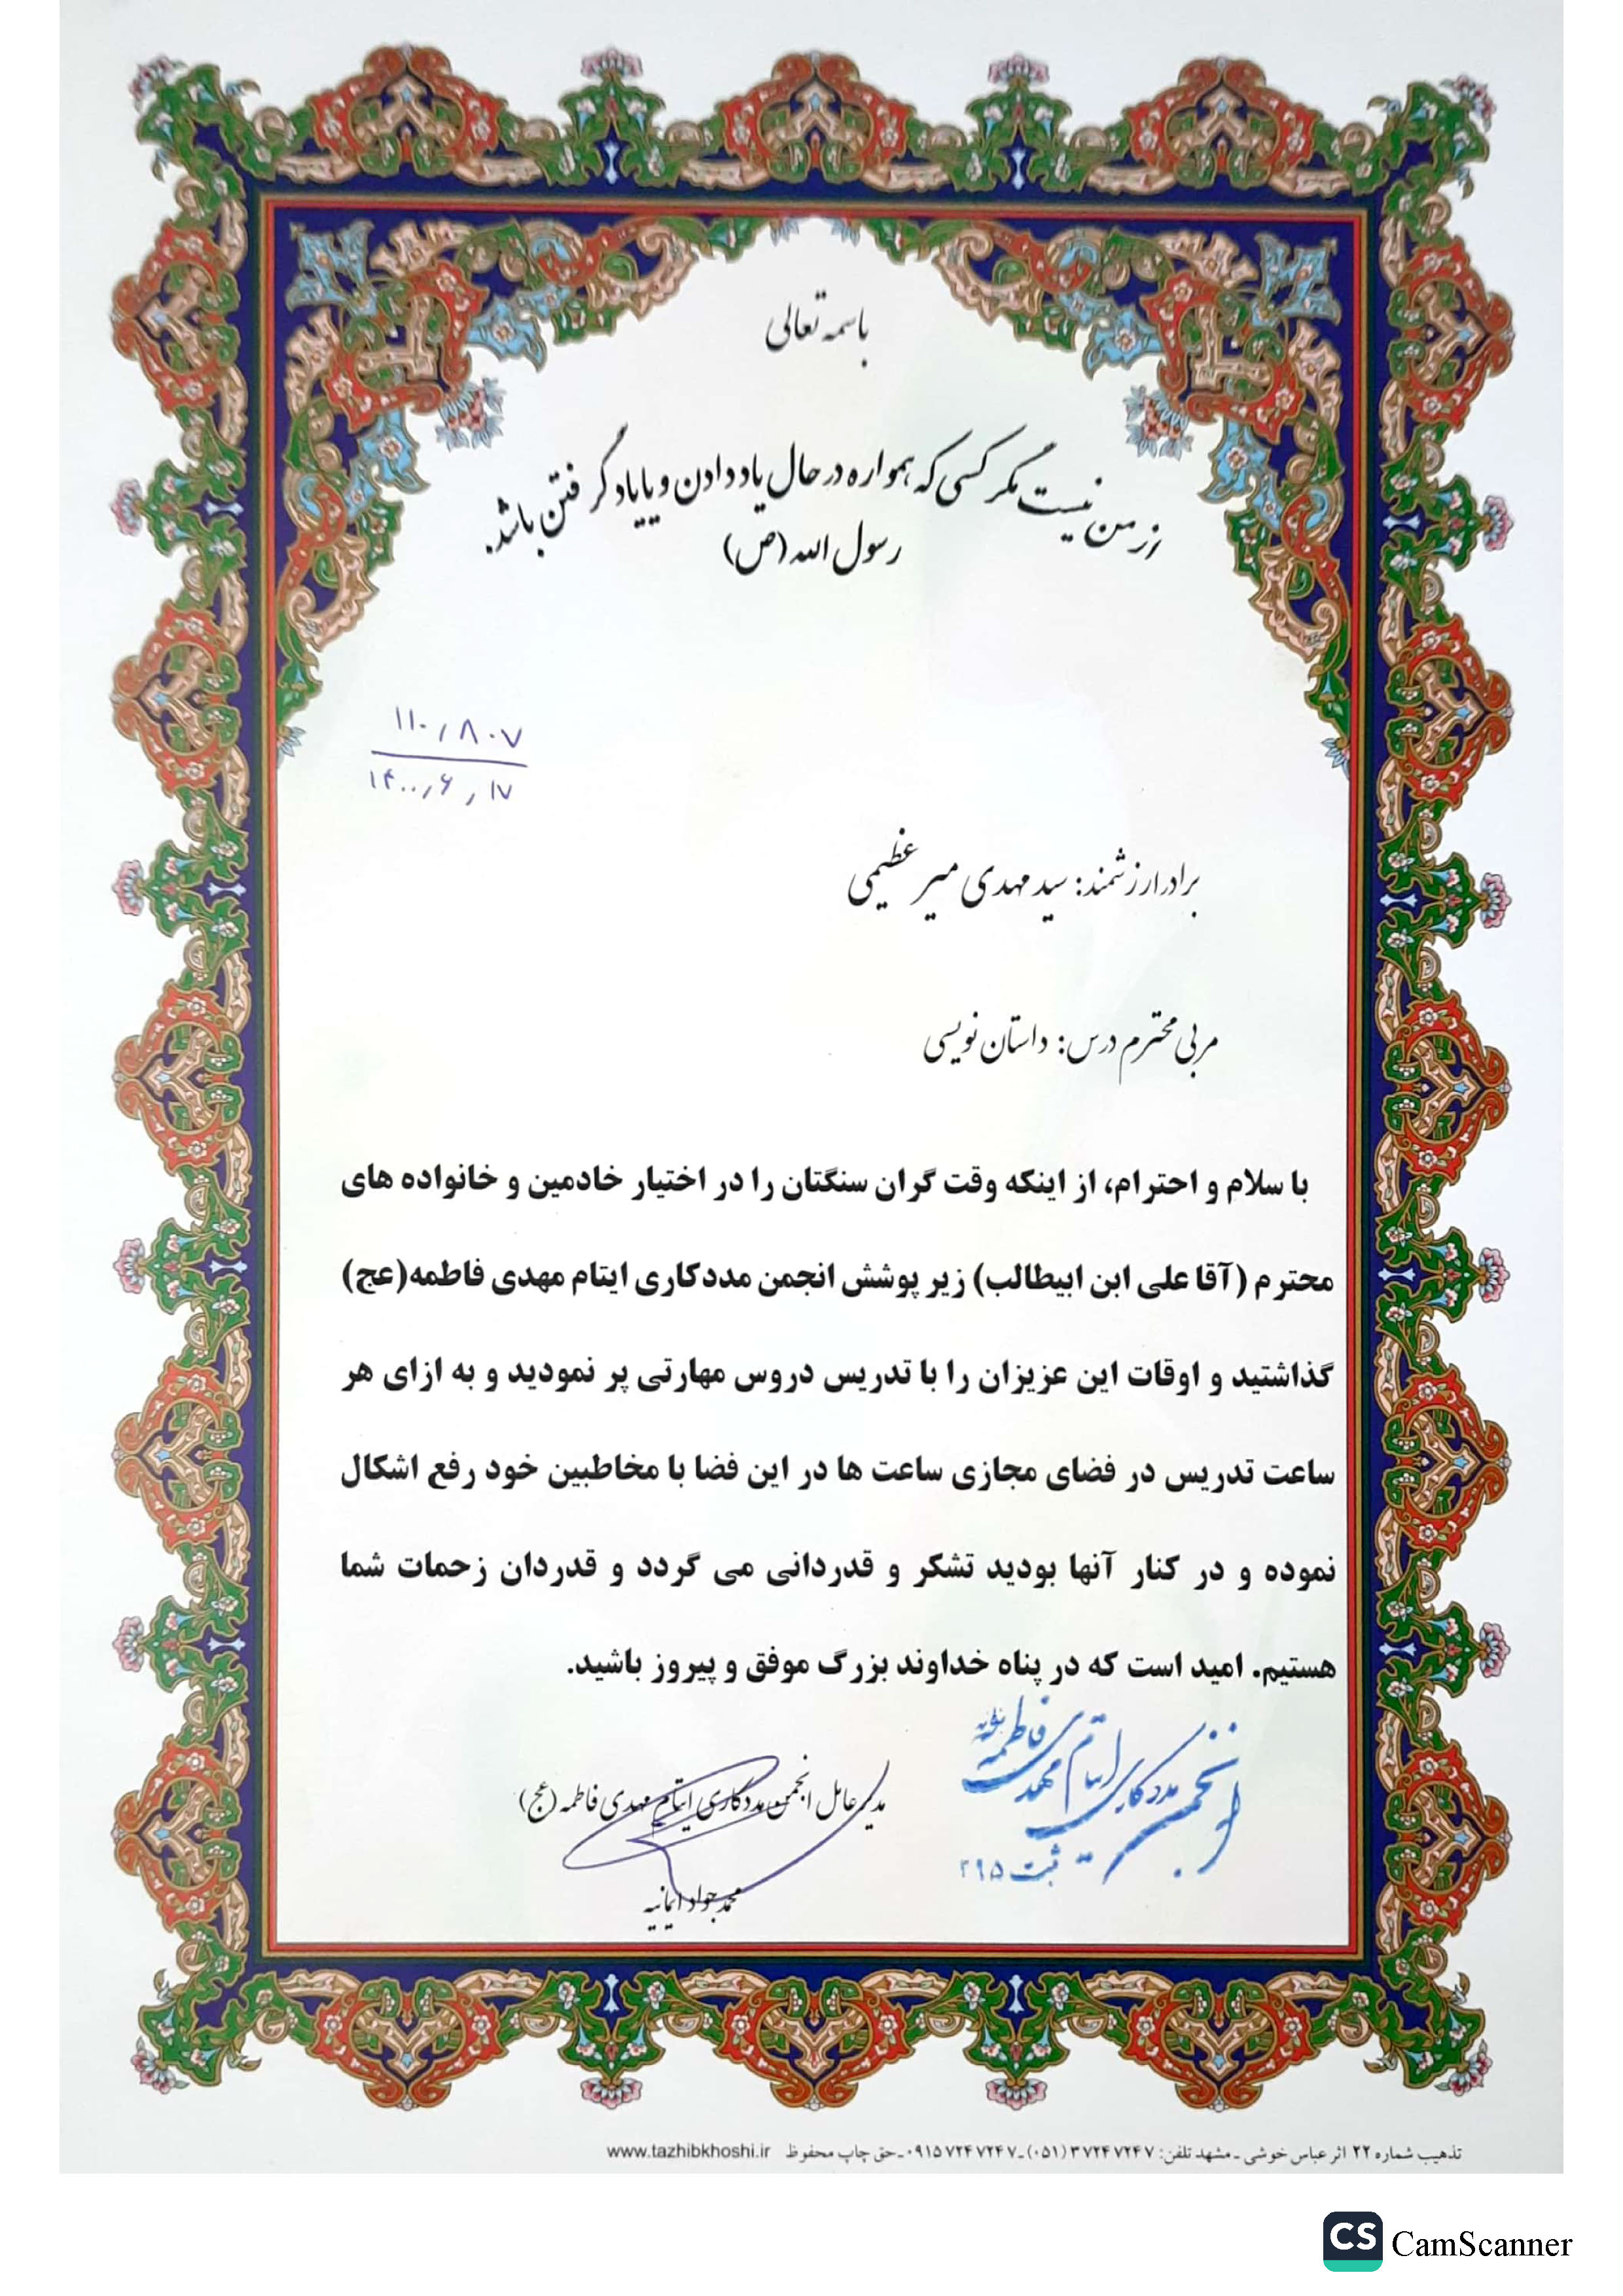 باسمه تعالی
از من نیست مگر کسی که همواره در حال یاد دادن و یا یاد گرفتن باشد.
رسول الله (ص)
۱۱۰/۸۰۷
۱۴۰۰/۶/۱۷
برادر ارزشمند: سید مهدی میر عظیمی
مربی محترم درس: داستان نویسی
با سلام و احترام، از اینکه وقت گران سنگتان را در اختیار خادمین و خانواده های
محترم (آقا علی ابن ابیطالب) زیر پوشش انجمن مددکاری ایتام مهدی فاطمه(عج)
گذاشتید و اوقات این عزیزان را با تدریس دروس مهارتی پر نمودید و به ازای هر
ساعت تدریس در فضای مجازی ساعت ها در این فضا با مخاطبین خود رفع اشکال
نموده و در کنار آنها بودید تشکر و قدردانی می گردد و قدردان زحمات شما
هستیم. امید است که در پناه خداوند بزرگ موفق و پیروز باشید.
انجمن مددکاری ایتام مهدی فاطمه
ثبت ۲۹۵
مدیر عامل انجمن مددکاری ایتام مهدی فاطمه (عج)
محمد جواد ایمانیه
تذهیب شماره ۲۲ اثر عباس خوشی ـ مشهد تلفن: ۳۷۲۴۷۲۴۷ (۰۵۱) ـ ۰۹۱۵۷۲۴۷۲۴۷ ـ حق چاپ محفوظ www.tazhibkhoshi.ir
CS CamScanner